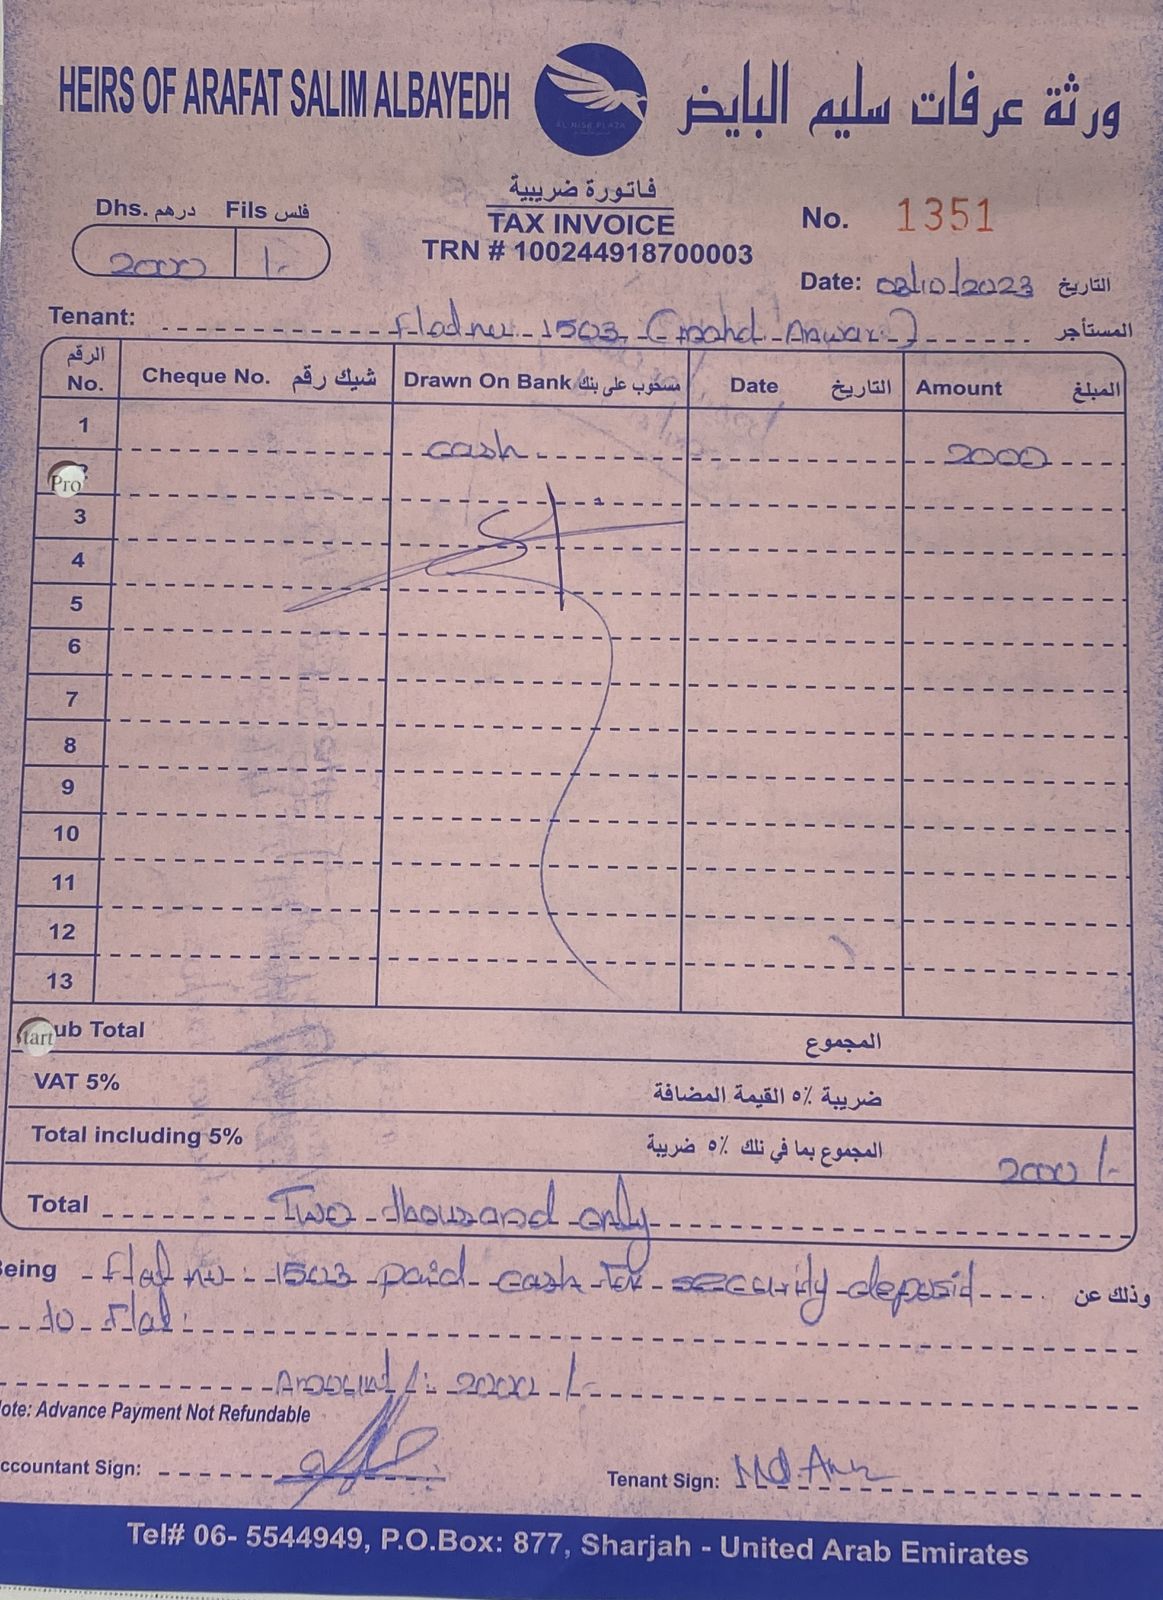 HEIRS OF ARAFAT SALIM ALBAYEDH
ورثة عرفات سليم البايض
AL NISR PLAZA
فاتورة ضريبية
TAX INVOICE
TRN # 100244918700003
Dhs. درهم Fils فلس
2000 /-
No. 1351
Date: 03/10/2023 التاريخ
Tenant: Flad no 1503 (mohd Anwar) المستأجر
الرقم No. Cheque No. شيك رقم Drawn On Bank مسحوب على بنك Date التاريخ Amount المبلغ
1 cash 2000
Pro
3
4
5
6
7
8
9
10
11
12
13
tart ub Total المجموع
VAT 5% ضريبة ٥٪ القيمة المضافة
Total including 5% المجموع بما في ذلك ٥٪ ضريبة 2000 /-
Total Two thousand only
Being Flat no: 1503 paid cash for security deposid وذلك عن
to Flat:
Amount /: 2000 /-
ote: Advance Payment Not Refundable
ccountant Sign:
Tenant Sign: Md Anw
Tel# 06- 5544949, P.O.Box: 877, Sharjah - United Arab Emirates